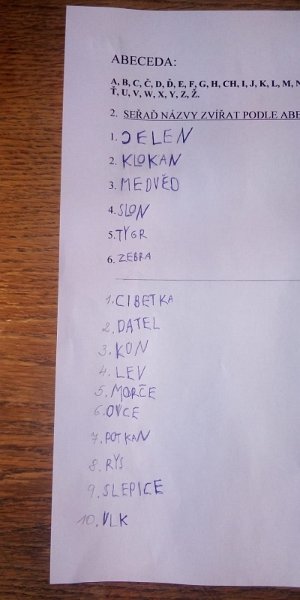 ABECEDA:
A, B, C, Č, D, Ď, E, F, G, H, CH, I, J, K, L, M, N
Ť, U, V, W, X, Y, Z, Ž.
2. SEŘAĎ NÁZVY ZVÍŘAT PODLE ABE
1. JELEN
2. KLOKAN
3. MEDVĚD
4. SLON
5. TYGR
6. ZEBRA
1. CIBETKA
2. DATEL
3. KON
4. LEV
5. MORČE
6. OVCE
7. POTKAN
8. RYS
9. SLEPICE
10. VLK